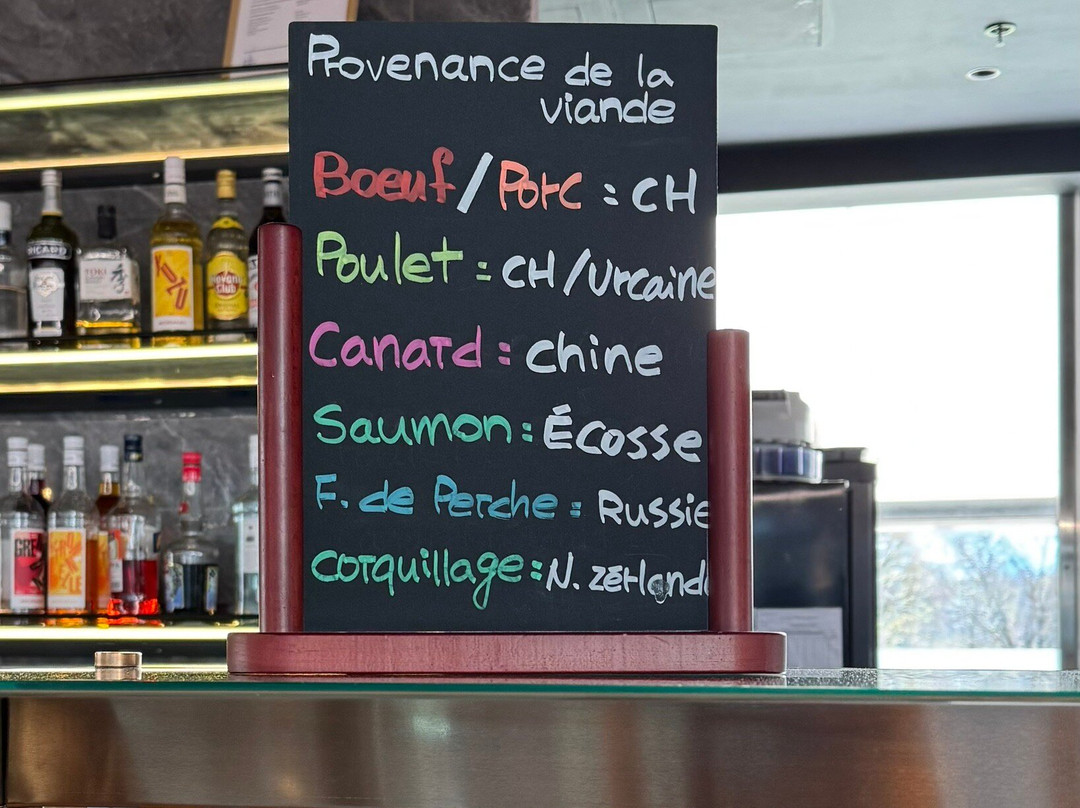 Provenance de la
viande
Boeuf / Porc : CH
Poulet : CH / Urcaine
Canard : chine
Saumon : Écosse
F. de Perche : Russie
corquillage : N. zérland
RICARD
TOKI
YUZU
Havana
Club